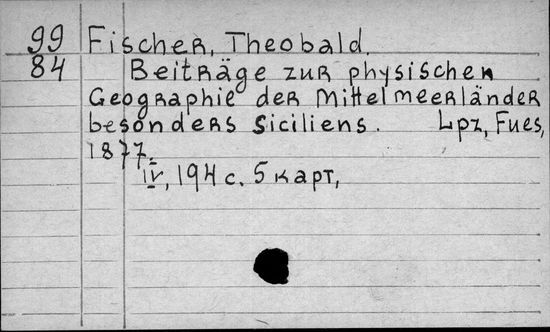 99 Fischer, Theobald.
84 Beiträge zur physischen
Geographie der Mittelmeerländer
besonders Siciliens. Lpz, Fues,
1877.
IV, 194 с. 5 карт,